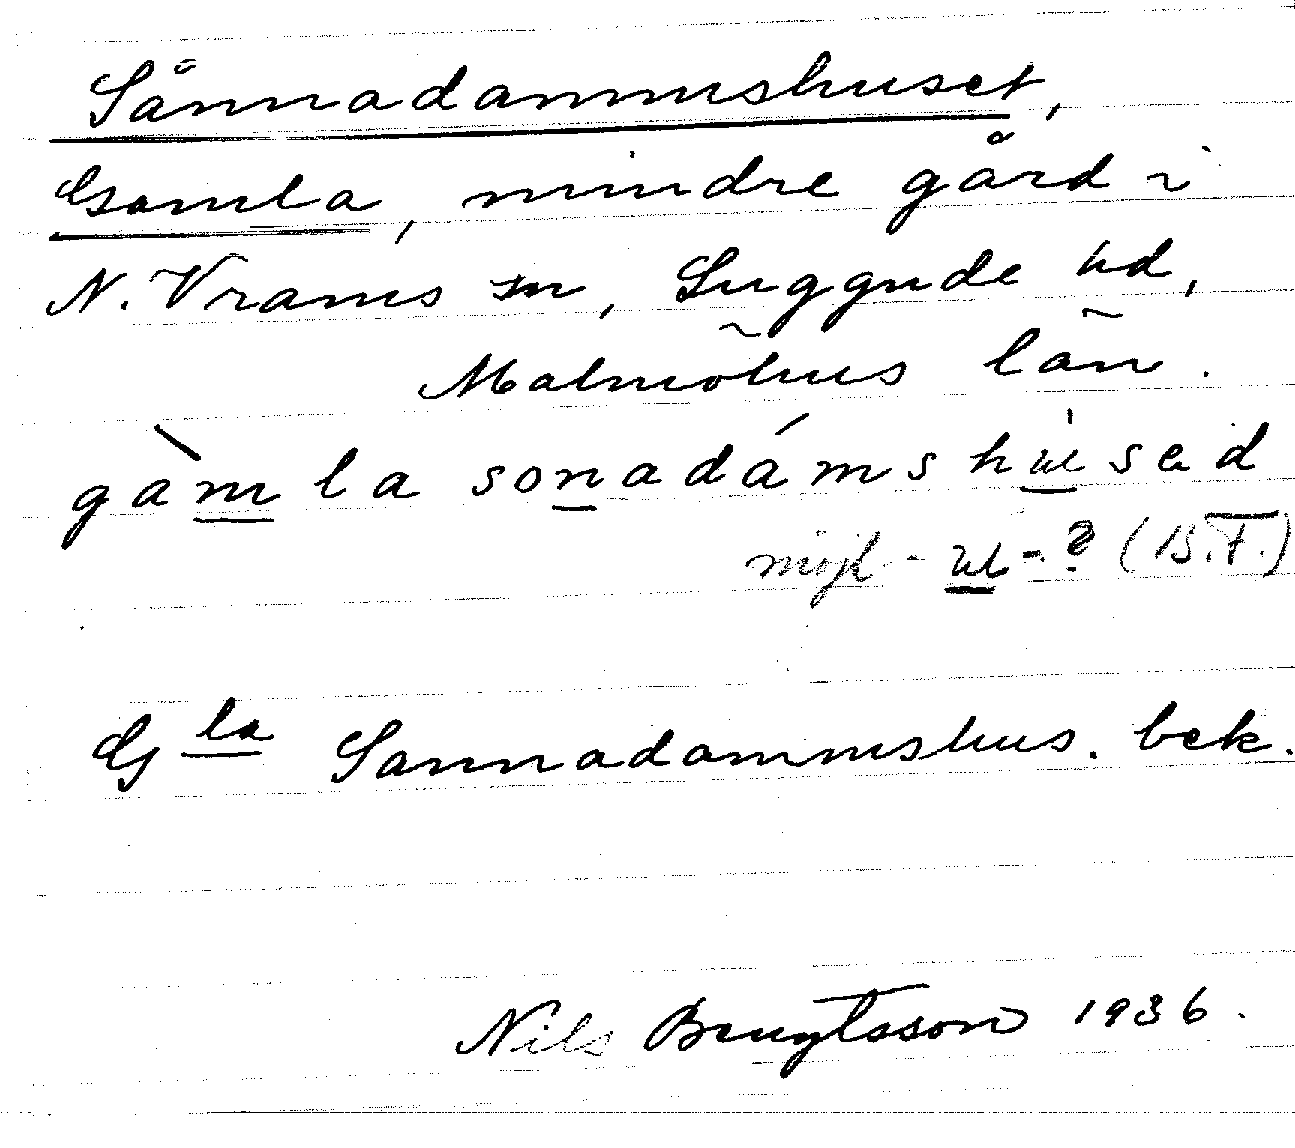 Sånnadammshuset,
Gamla, mindre gård i
N. Vrams sn, Luggude hd,
Malmöhus län.
gàmla sonadámshused
möjl - -? (B.F.)
Gla Sannadammshus. bek.
Nils Bengtsson 1936.